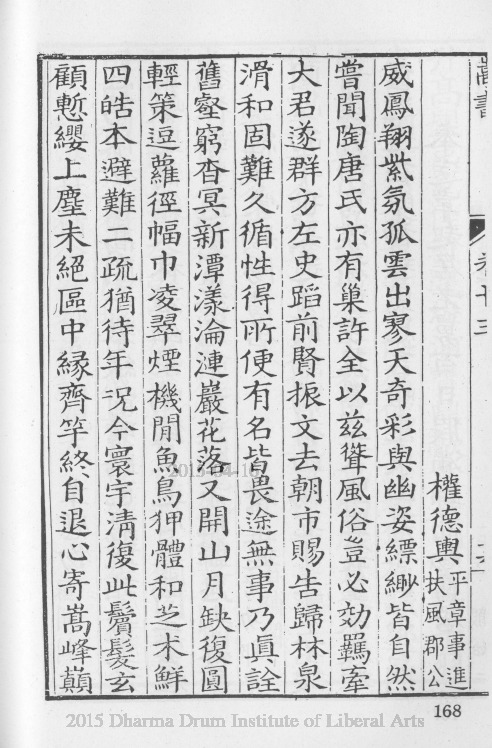 嵩書
卷十三
權德輿平章事進扶風郡公
威鳳翔紫氛孤雲出寥天奇彩與幽姿縹緲皆自然
嘗聞陶唐氏亦有巢許全以茲聳風俗豈必効羈牽
大君遂群方左史蹈前賢振文去朝市賜告歸林泉
滑和固難久循性得所便有名皆畏途無事乃真詮
舊壑窮杳冥新潭漾淪漣巖花落又開山月缺復圓
輕策逗蘿徑幅巾凌翠煙機閒魚鳥狎體和芝术鮮
四皓本避難二疏猶待年况今寰宇清復此鬢髮玄
顧慙纓上塵未絕區中緣齊竽終自退心寄嵩峰巔
168
2015-04-10
2015 Dharma Drum Institute of Liberal Arts